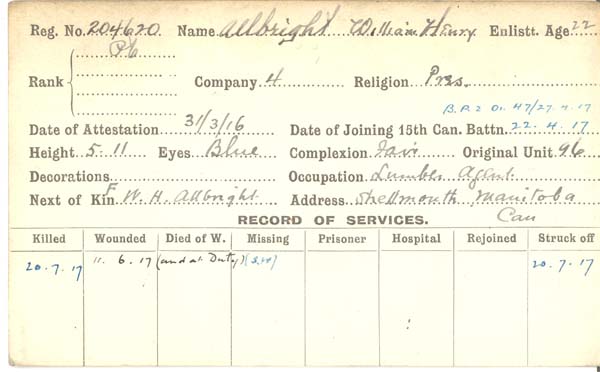 Reg. No. 204620. Name Allbright William Henry Enlistt. Age 22
Pte
Rank Company 4 Religion Pres.
B.P.2 O. 47/27.4.17
Date of Attestation 31/3/16 Date of Joining 15th Can. Battn. 22.4.17
Height 5.11 Eyes Blue Complexion Fair Original Unit 96
Decorations Occupation Lumber Agent
Next of Kin F W. H. Allbright Address Shellmouth Manitoba
Can
RECORD OF SERVICES.
Killed Wounded Died of W. Missing Prisoner Hospital Rejoined Struck off
20.7.17 11.6.17 (and at Duty) 20.7.17